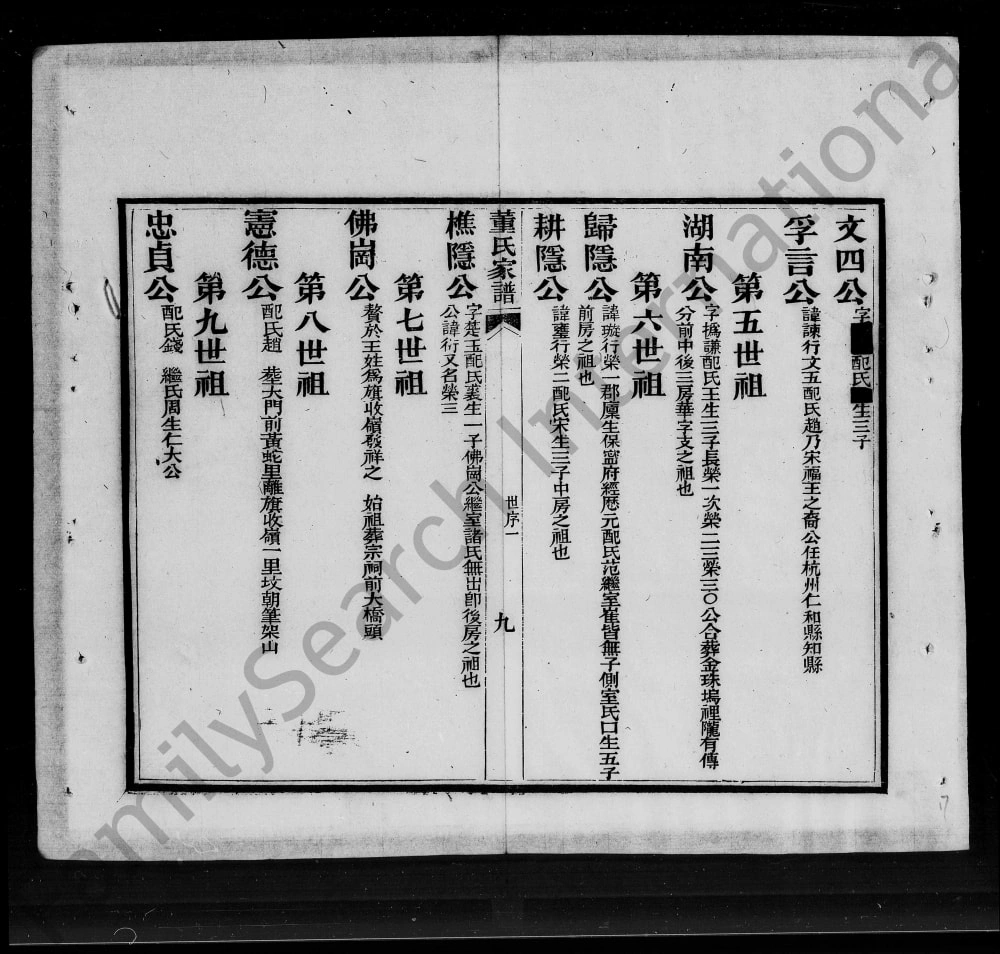 文四公字 配氏 生三子
孚言公諱諫行文五配氏趙乃宋福王之裔公任杭州仁和縣知縣
第五世祖
湖南公字撝謙配氏王生三子長榮一次榮二三榮三〇公合葬金珠塢裡隴有傳
分前中後三房華字支之祖也
第六世祖
歸隱公諱璇行榮一郡廩生保寧府經歷元配氏范繼室崔皆無子側室氏口生五子
前房之祖也
耕隱公諱 行榮二配氏宋生三子中房之祖也
董氏家譜 世序一 九
樵隱公字楚玉配氏裘生一子佛崗公繼室諸氏無出卽後房之祖也
公諱衍又名榮三
第七世祖
佛崗公贅於王姓爲旗收嶺發祥之 始祖葬宗祠前大橋頭
第八世祖
憲德公配氏趙 葬大門前黃蛇里離旗收嶺一里坟朝筆架山
第九世祖
忠貞公配氏錢 繼氏周生仁大公
FamilySearch International
17